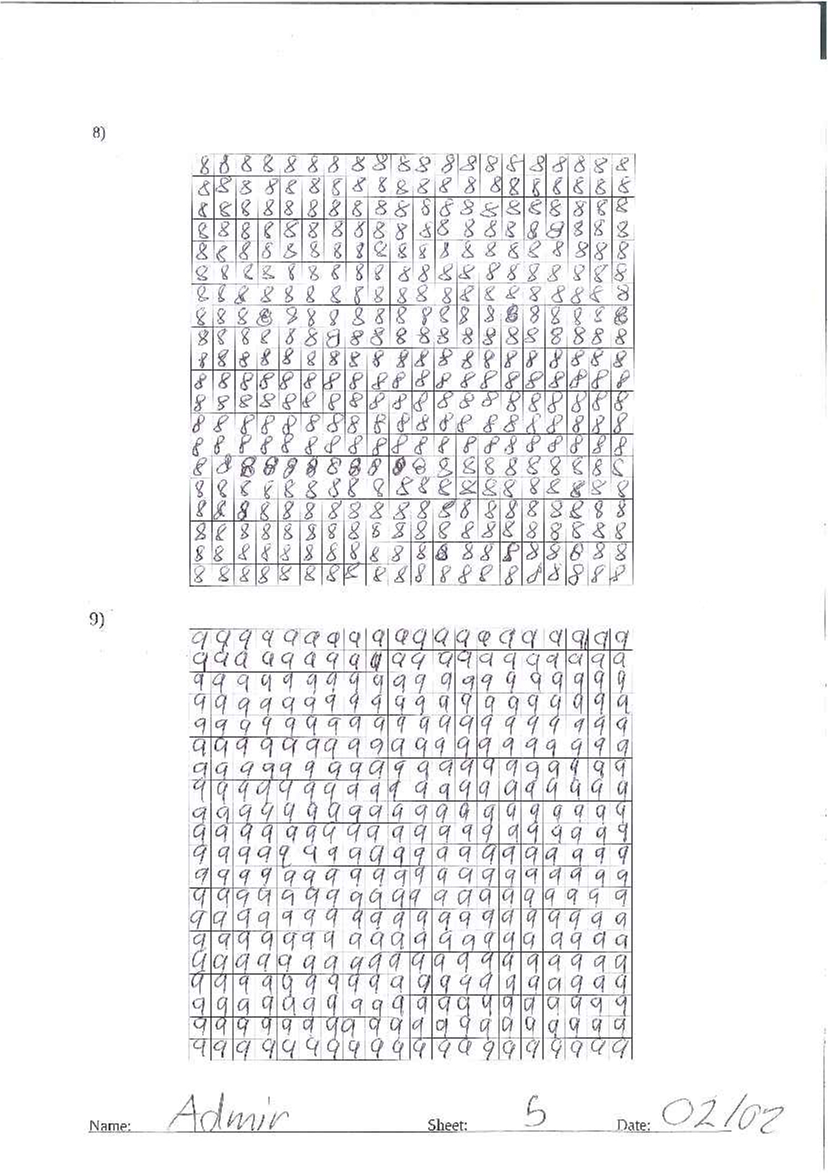 8)
8 8 8 8 8 8 8 8 8 8 8 8 8 8 8 8 8 8 8 8
8 8 8 8 8 8 8 8 8 8 8 8 8 8 8 8 8 8 8 8
8 8 8 8 8 8 8 8 8 8 8 8 8 8 8 8 8 8 8 8
8 8 8 8 8 8 8 8 8 8 8 8 8 8 8 8 8 8 8 8
8 8 8 8 8 8 8 8 8 8 8 8 8 8 8 8 8 8 8 8
8 8 8 8 8 8 8 8 8 8 8 8 8 8 8 8 8 8 8 8
8 8 8 8 8 8 8 8 8 8 8 8 8 8 8 8 8 8 8 8
8 8 8 8 8 8 8 8 8 8 8 8 8 8 8 8 8 8 8 8
8 8 8 8 8 8 8 8 8 8 8 8 8 8 8 8 8 8 8 8
8 8 8 8 8 8 8 8 8 8 8 8 8 8 8 8 8 8 8 8
8 8 8 8 8 8 8 8 8 8 8 8 8 8 8 8 8 8 8 8
8 8 8 8 8 8 8 8 8 8 8 8 8 8 8 8 8 8 8 8
8 8 8 8 8 8 8 8 8 8 8 8 8 8 8 8 8 8 8 8
8 8 8 8 8 8 8 8 8 8 8 8 8 8 8 8 8 8 8 8
8 8 8 8 8 8 8 8 8 8 8 8 8 8 8 8 8 8 8 8
8 8 8 8 8 8 8 8 8 8 8 8 8 8 8 8 8 8 8 8
8 8 8 8 8 8 8 8 8 8 8 8 8 8 8 8 8 8 8 8
8 8 8 8 8 8 8 8 8 8 8 8 8 8 8 8 8 8 8 8
8 8 8 8 8 8 8 8 8 8 8 8 8 8 8 8 8 8 8 8
8 8 8 8 8 8 8 8 8 8 8 8 8 8 8 8 8 8 8 8
9)
9 9 9 9 9 9 9 9 9 9 9 9 9 9 9 9 9 9 9 9
9 9 9 9 9 9 9 9 9 9 9 9 9 9 9 9 9 9 9 9
9 9 9 9 9 9 9 9 9 9 9 9 9 9 9 9 9 9 9 9
9 9 9 9 9 9 9 9 9 9 9 9 9 9 9 9 9 9 9 9
9 9 9 9 9 9 9 9 9 9 9 9 9 9 9 9 9 9 9 9
9 9 9 9 9 9 9 9 9 9 9 9 9 9 9 9 9 9 9 9
9 9 9 9 9 9 9 9 9 9 9 9 9 9 9 9 9 9 9 9
9 9 9 9 9 9 9 9 9 9 9 9 9 9 9 9 9 9 9 9
9 9 9 9 9 9 9 9 9 9 9 9 9 9 9 9 9 9 9 9
9 9 9 9 9 9 9 9 9 9 9 9 9 9 9 9 9 9 9 9
9 9 9 9 9 9 9 9 9 9 9 9 9 9 9 9 9 9 9 9
9 9 9 9 9 9 9 9 9 9 9 9 9 9 9 9 9 9 9 9
9 9 9 9 9 9 9 9 9 9 9 9 9 9 9 9 9 9 9 9
9 9 9 9 9 9 9 9 9 9 9 9 9 9 9 9 9 9 9 9
9 9 9 9 9 9 9 9 9 9 9 9 9 9 9 9 9 9 9 9
9 9 9 9 9 9 9 9 9 9 9 9 9 9 9 9 9 9 9 9
9 9 9 9 9 9 9 9 9 9 9 9 9 9 9 9 9 9 9 9
9 9 9 9 9 9 9 9 9 9 9 9 9 9 9 9 9 9 9 9
9 9 9 9 9 9 9 9 9 9 9 9 9 9 9 9 9 9 9 9
9 9 9 9 9 9 9 9 9 9 9 9 9 9 9 9 9 9 9 9
Name: Admir Sheet: 5 Date: 02/02